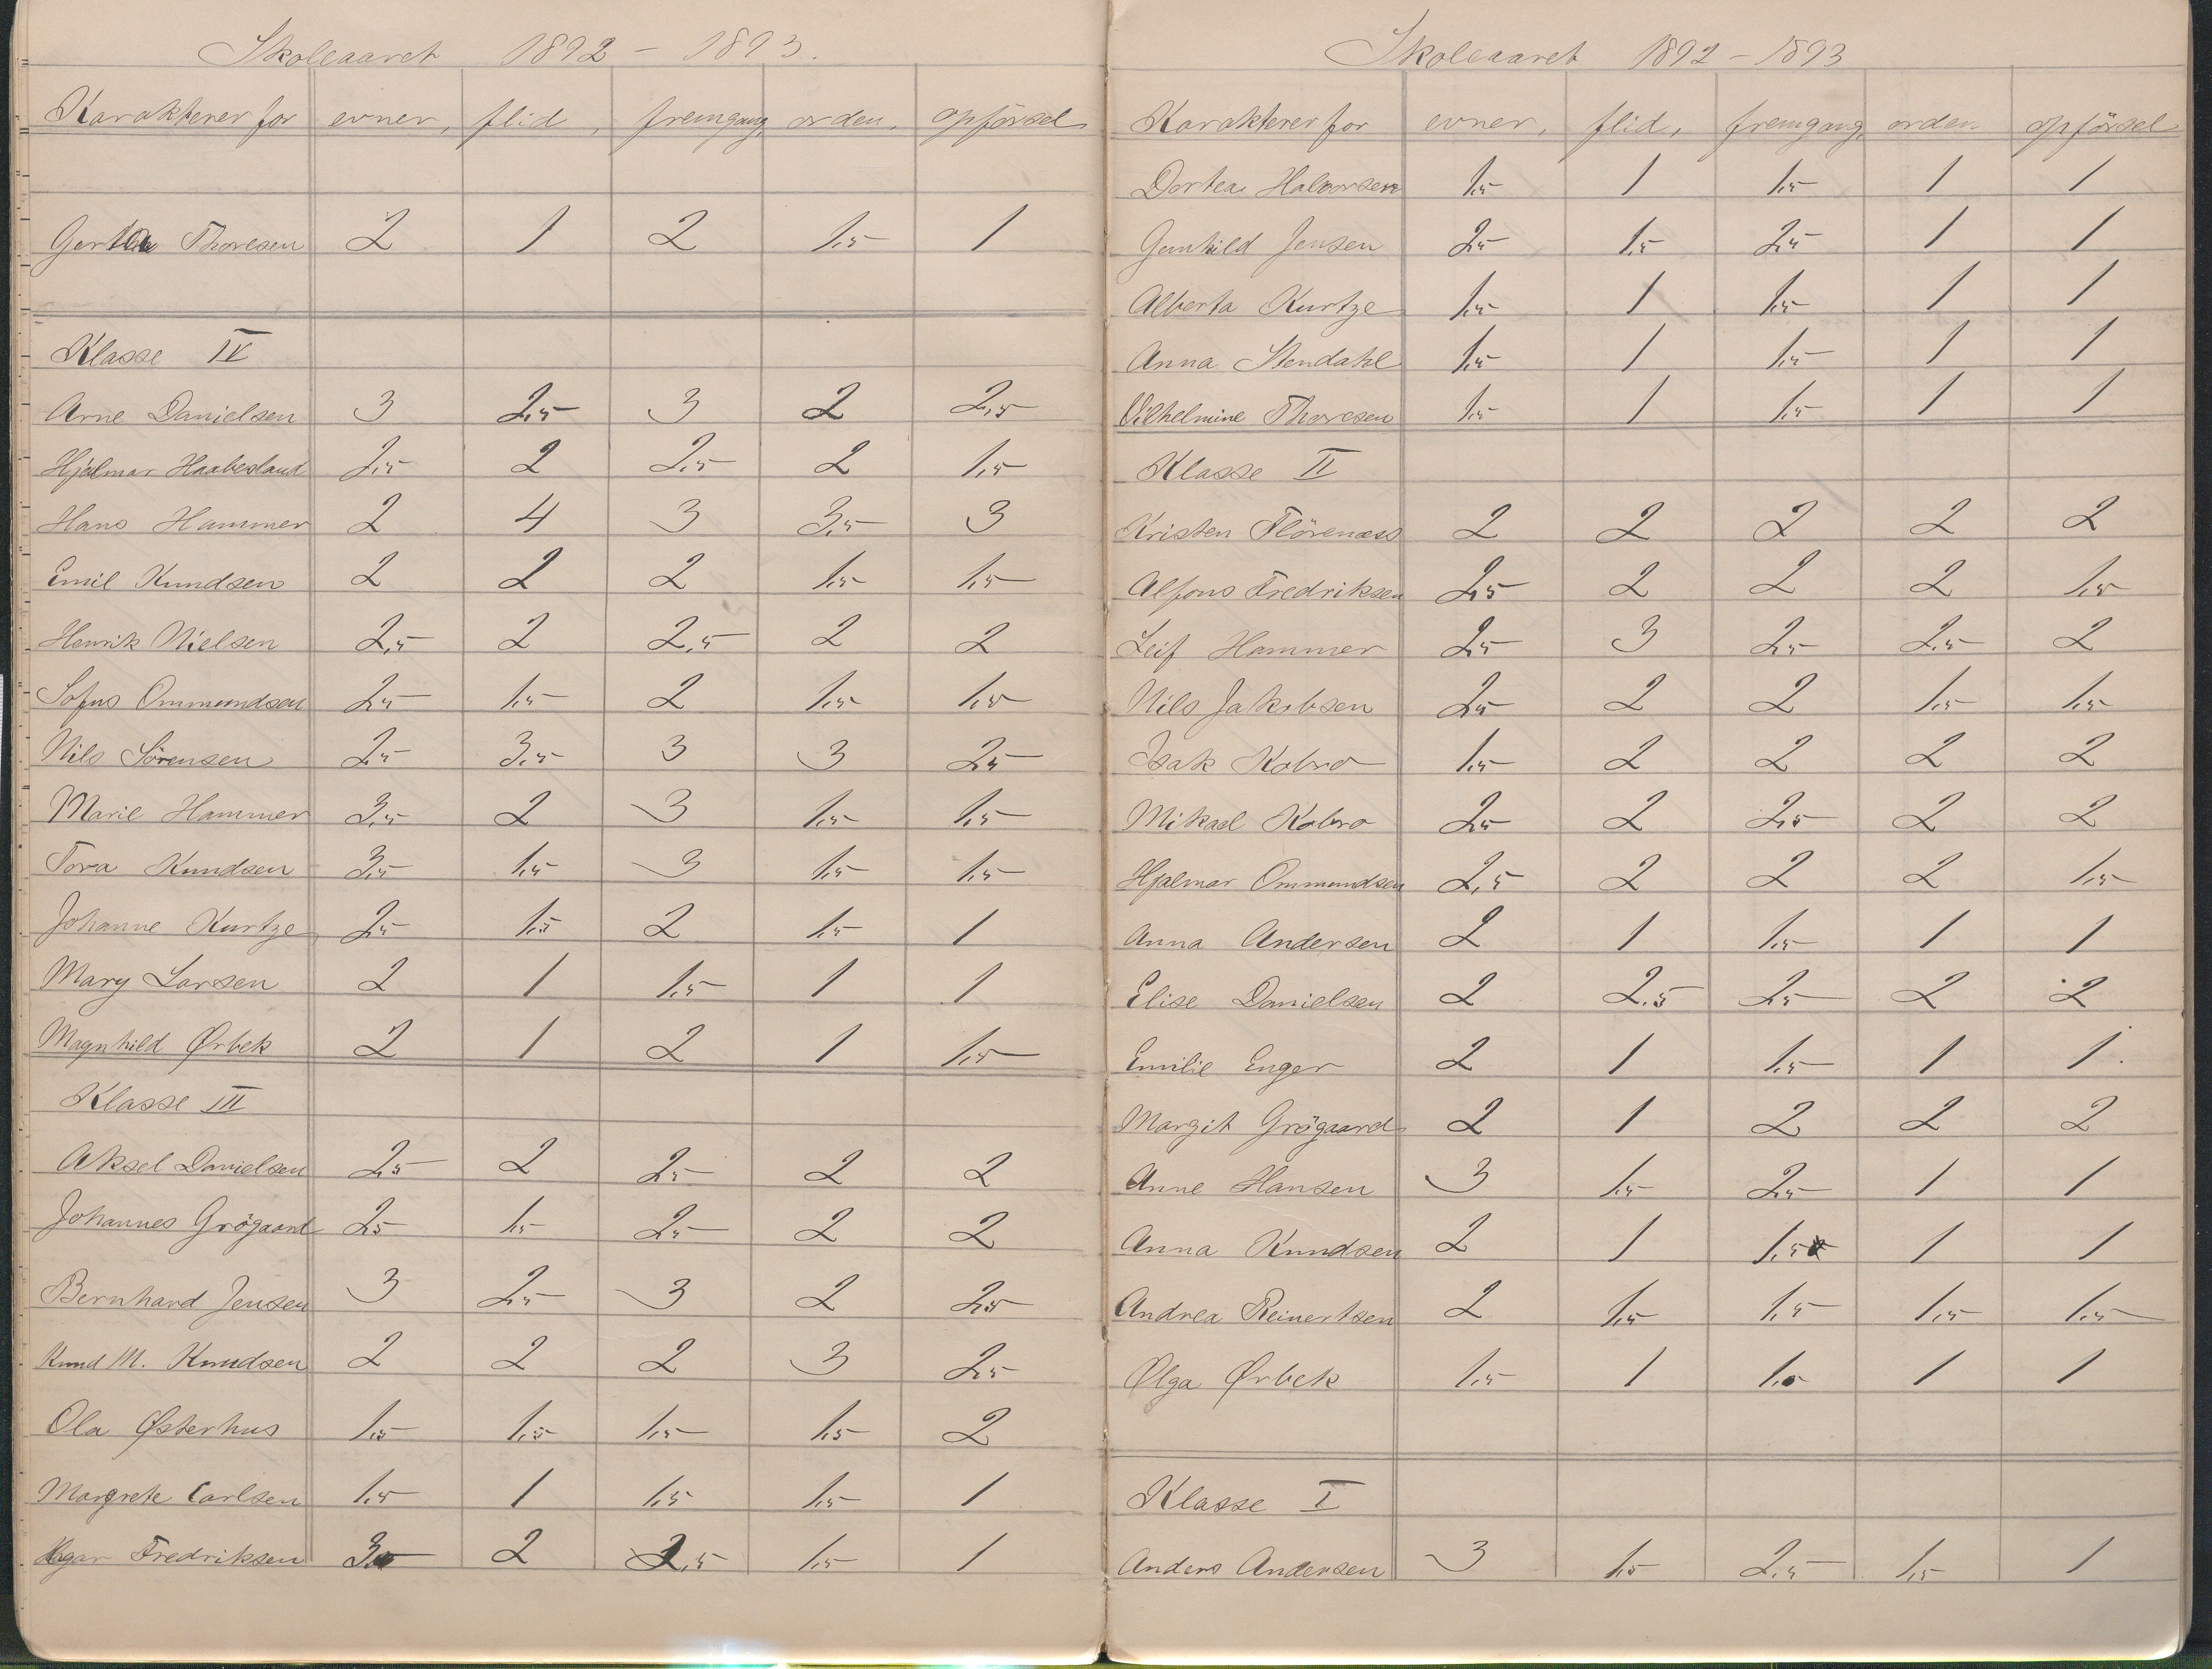 Skoleaaret 1892 - 1893.
Karakterer for evner, flid, fremgang, orden, opförsel
Gerthe Thoresen 2 1 2 1,5 1
Klasse IV
Arne Danielsen 3 2,5 3 2 2,5
Hjalmar Haabesland 2,5 2 2,5 2 1,5
Hans Hammer 2 4 3 3,5 3
Emil Knudsen 2 2 2 1,5 1,5
Henrik Nielsen 2,5 2 2,5 2 2
Sofus Ommundsen 2,5 1,5 2 1,5 1,5
Nils Sörensen 2,5 3,5 3 3 2,5
Marie Hammer 3,5 2 3 1,5 1,5
Tora Knudsen 3,5 1,5 3 1,5 1,5
Johanne Kurtze 2,5 1,5 2 1,5 1
Mary Larsen 2 1 1,5 1 1
Magnhild Ørbek 2 1 2 1 1,5
Klasse III
Aksel Danielsen 2,5 2 2,5 2 2
Johannes Grögaard 2,5 1,5 2,5 2 2
Bernhard Jensen 3 2,5 3 2 2,5
Knud M. Knudsen 2 2 2 3 2,5
Ola Østerhus 1,5 1,5 1,5 1,5 2
Margrete Carlsen 1,5 1 1,5 1,5 1
Hagar Fredriksen 3 2 2,5 1,5 1
Skoleaaret 1892 - 1893
Karakterer for evner, flid, fremgang, orden opförsel
Dortea Halvorsen 1,5 1 1,5 1 1
Gunhild Jensen 2,5 1,5 2,5 1 1
Alberta Kurtze 1,5 1 1,5 1 1
Anna Stendahl 1,5 1 1,5 1 1
Vilhelmine Thoresen 1,5 1 1,5 1 1
Klasse II
Kristen Flörenæs 2 2 2 2 2
Alfons Fredriksen 2,5 2 2 2 1,5
Leif Hammer 2,5 3 2,5 2,5 2
Nils Jakobsen 2,5 2 2 1,5 1,5
Isak Kobro 1,5 2 2 2 2
Mikael Kobro 2,5 2 2,5 2 2
Hjalmar Ommundsen 2,5 2 2 2 1,5
Anna Andersen 2 1 1,5 1 1
Elise Danielsen 2 2,5 2,5 2 2
Emilie Enger 2 1 1,5 1 1
Margit Grögaard 2 1 2 2 2
Anne Hansen 3 1,5 2,5 1 1
Anna Knudsen 2 1 1,5 1 1
Andrea Reinertsen 2 1,5 1,5 1,5 1,5
Olga Ørbek 1,5 1 1,5 1 1
Klasse I
Anders Andersen 3 1,5 2,5 1,5 1